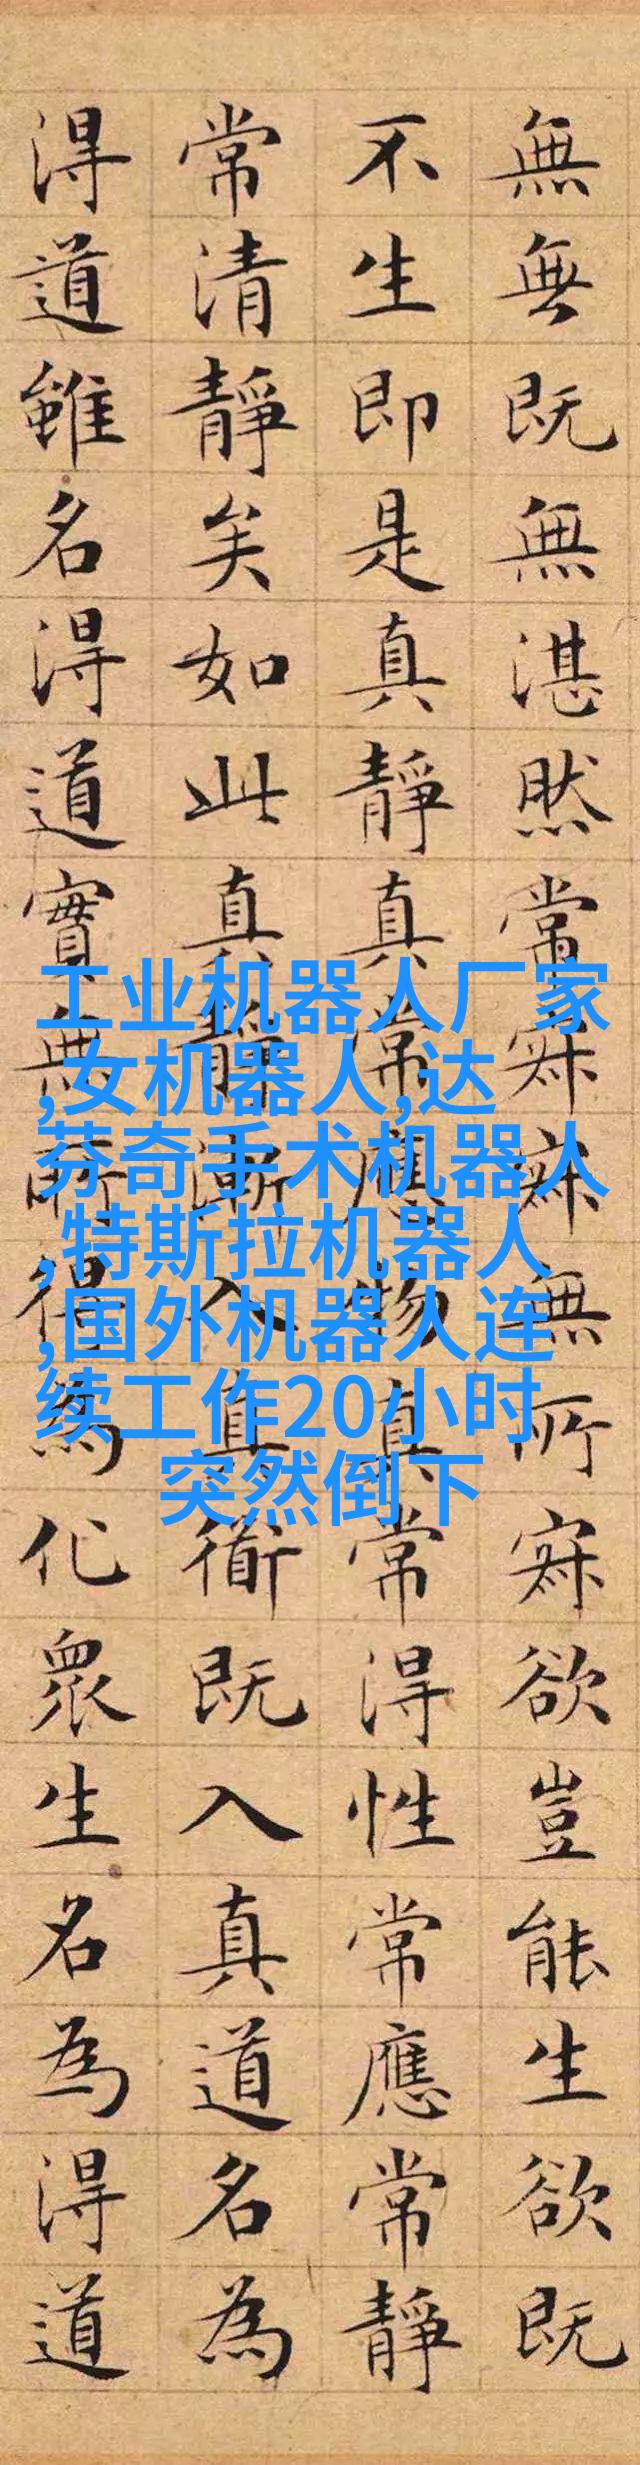 無無既無湛然常寂寂無所寂欲豈能生欲既
不生即是真靜真常應物真常得性常應常靜
常清靜矣如此真靜漸入真衜既入真道名為
得道雖名得道實無所得為化眾生名為得道
工业机器人厂家
,女机器人,达
芬奇手术机器人
,特斯拉机器人
,国外机器人连
续工作20小时
突然倒下